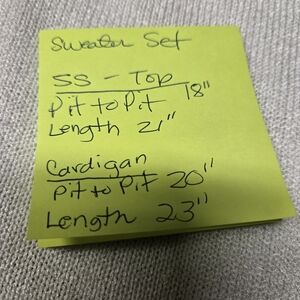 Sweater Set
SS - Top
Pit to Pit 18"
Length 21"
Cardigan
Pit to Pit 20"
Length 23"